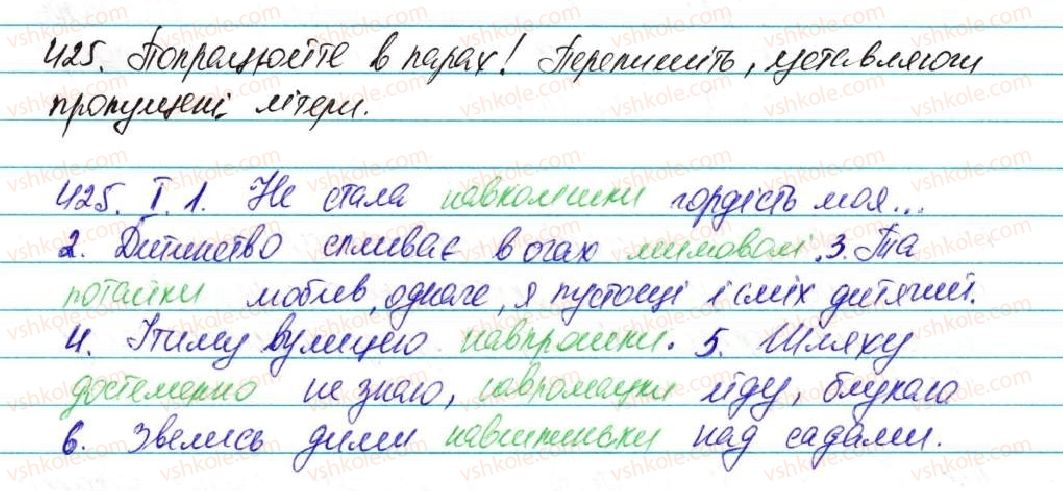 425. Попрацюйте в парах! Перепишіть, уставляючи
пропущені літери.
425. I. 1. Не стала навколішки гордість моя...
2. Дитинство спливає в очах мимоволі. 3. Та
потайки любив, одначе, я пустощі і сміх дитячий.
4. Ітиму вулицею навпрошки. 5. Шляху
достеменно не знаю, навмання йду, блукаю
6. Звелись дими навшпиньки над садами.